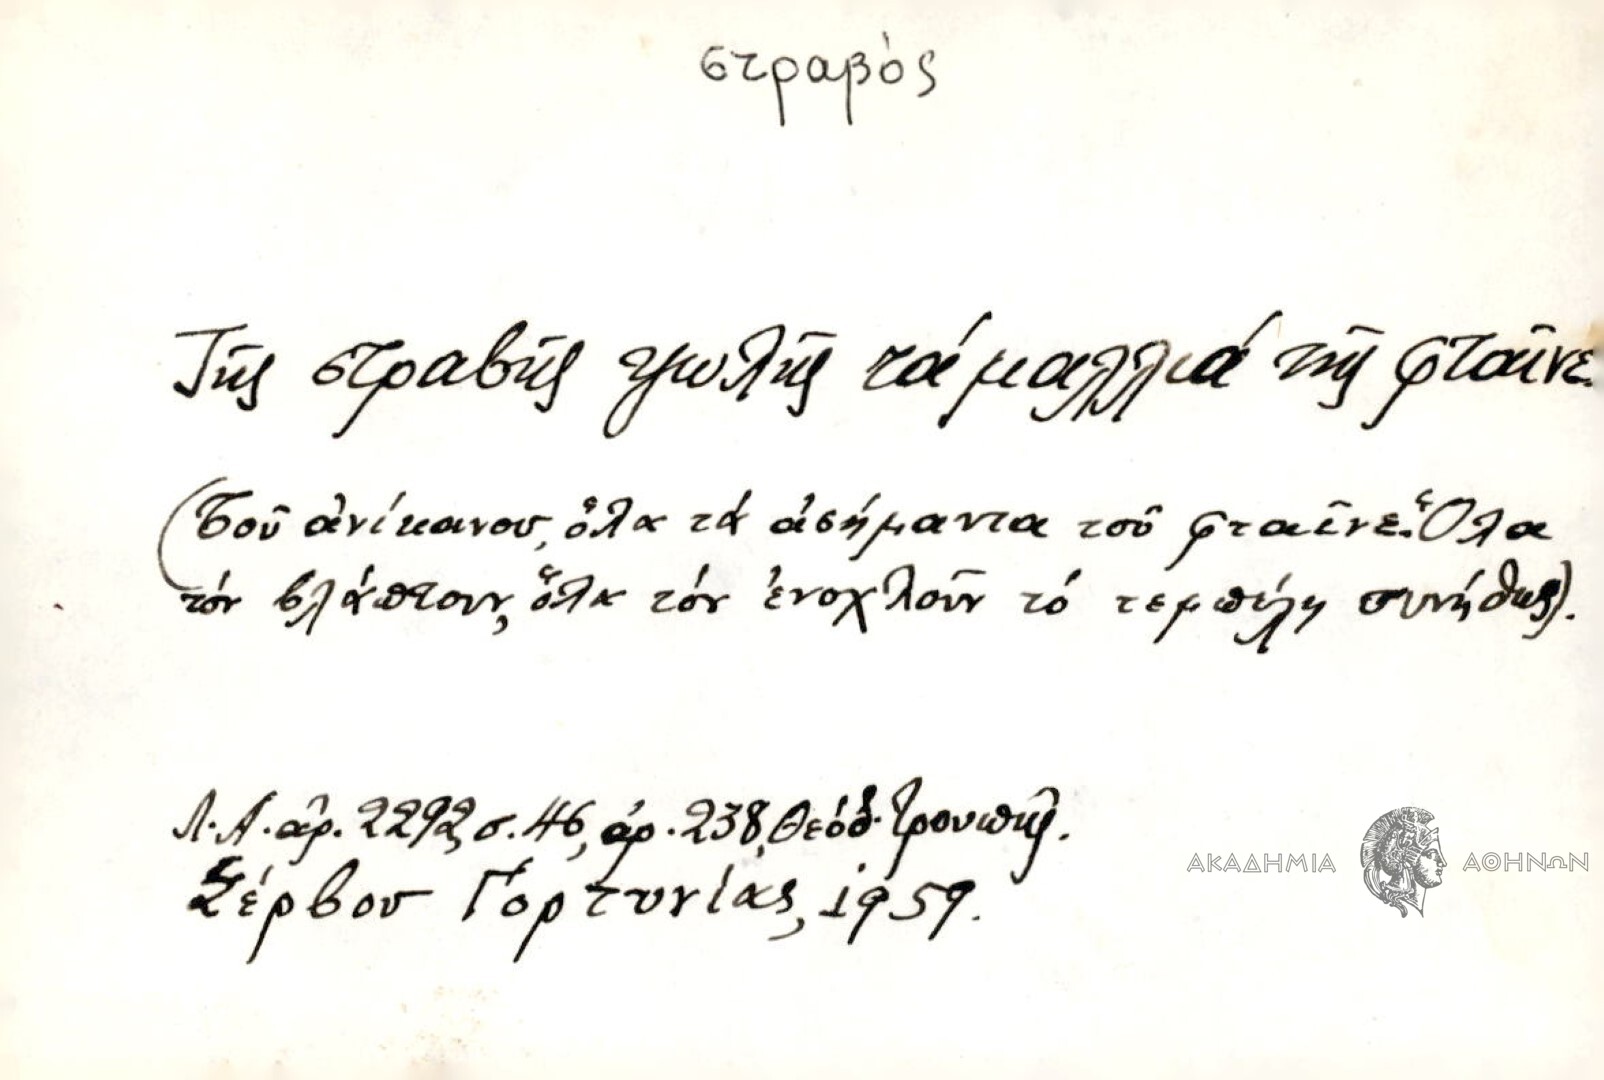 στραβός
Τῆς στραβῆς ψωλῆς τά μαλλιά τῆς φταῖνε.
(Τοῦ ἀνίκανου, ὅλα τά ἀσήμαντα τοῦ φταῖνε. Ὅλα
τόν βλάπτουν, ὅλα τόν ἐνοχλοῦν τό τεμπέλη συνήθως).
Λ.Α. ἀρ. 2292, σ. 46, ἀρ. 238, Θεόδ. Τρουπῆς.
Σέρβου Γορτυνίας, 1959.
ΑΚΑΔΗΜΙΑ ΑΘΗΝΩΝ